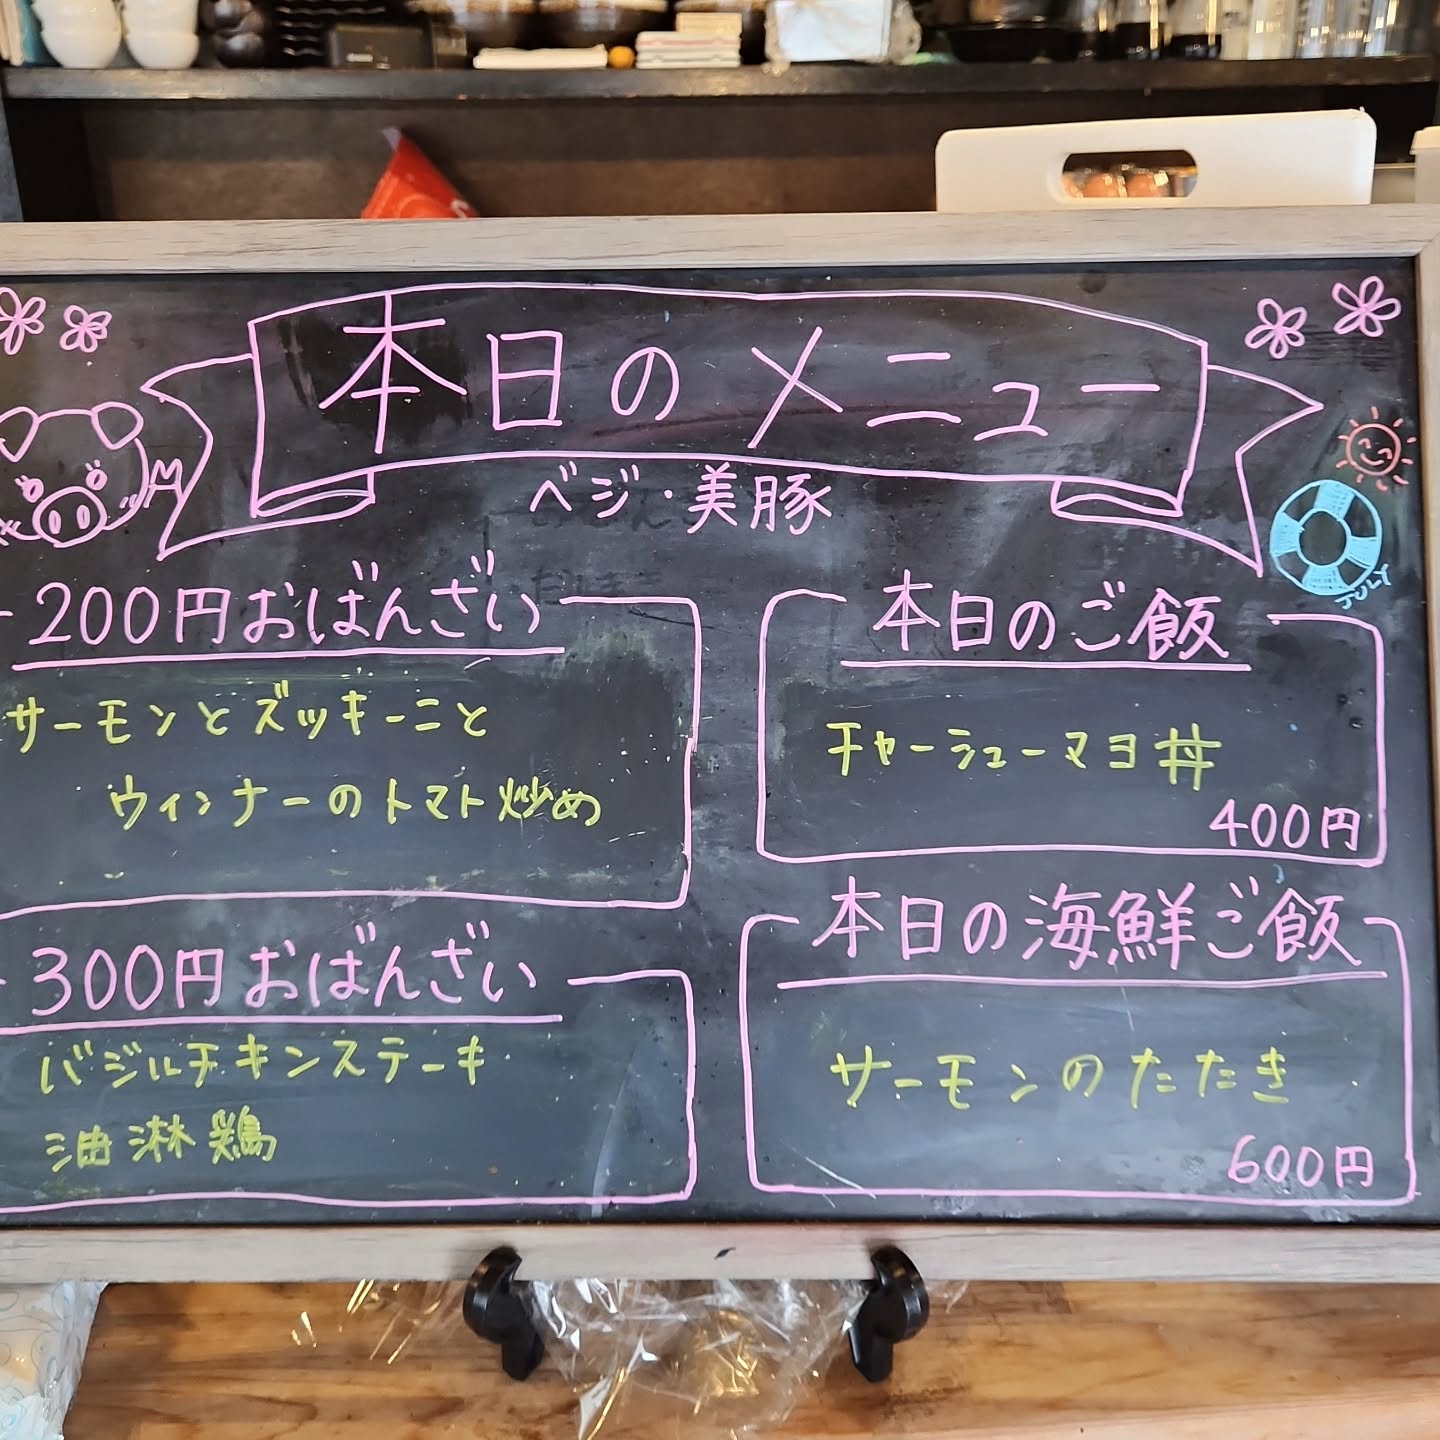 本日のメニュー
ベジ・美豚
200円おばんざい
サーモンとズッキーニと
ウィンナーのトマト炒め
300円おばんざい
バジルチキンステーキ
油淋鶏
本日のご飯
チャーシューマヨ丼
400円
本日の海鮮ご飯
サーモンのたたき
600円
JULY